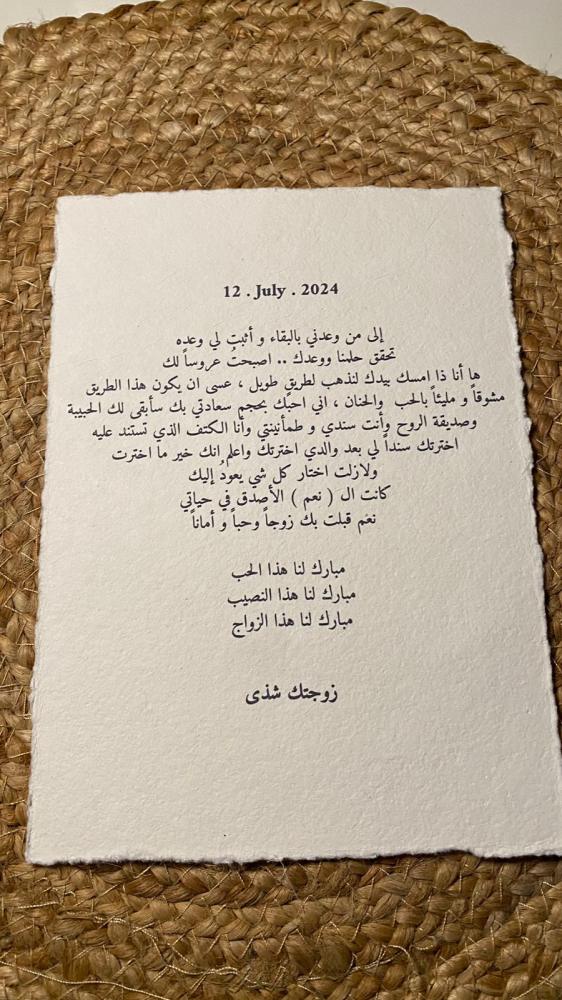 12 . July . 2024
إلى من وعدني بالبقاء و أثبت لي وعده
تحقق حلمنا ووعدك .. اصبحتُ عروساً لك
ها أنا ذا امسك بيدك لنذهب لطريقٍ طويل ، عسى ان يكون هذا الطريق
مشوقاً و مليئاً بالحب والحنان ، اني احبك بحجم سعادتي بك سأبقى لك الحبيبة
وصديقة الروح وأنت سندي و طمأنينتي وأنا الكتف الذي تستند عليه
اخترتك سنداً لي بعد والدي اخترتك واعلم انك خير ما اخترت
ولازلت اختار كل شي يعودُ إليك
كانت ال ( نعم ) الأصدق في حياتي
نعم قبلت بك زوجاً وحباً و أماناً
مبارك لنا هذا الحب
مبارك لنا هذا النصيب
مبارك لنا هذا الزواج
زوجتك شذى